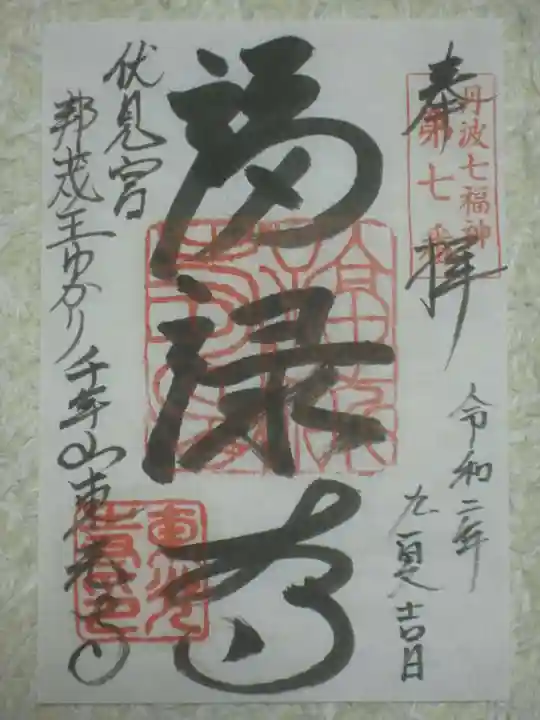 奉拝
丹波七福神
第七番
令和二年
九夏吉日
福禄寿
伏見宮
邦茂王ゆかり千年山東光寺
東光